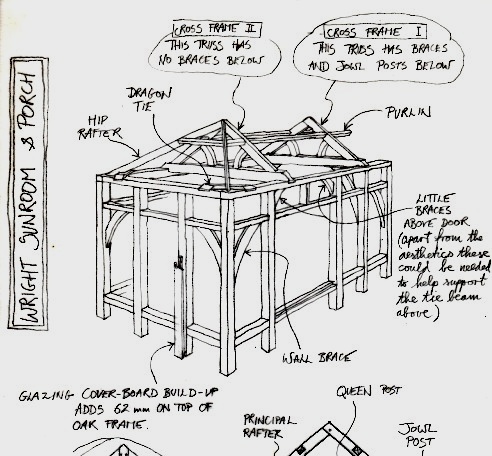 WRIGHT SUNROOM & PORCH
CROSS FRAME II
THIS TRUSS HAS
NO BRACES BELOW
CROSS FRAME I
THIS TRUSS HAS BRACES
AND JOWL POSTS BELOW
DRAGON
TIE
HIP
RAFTER
PURLIN
LITTLE
BRACES
ABOVE DOOR
(apart from the
aesthetics these
could be needed
to help support
the tie beam
above)
WALL BRACE
GLAZING COVER-BOARD BUILD-UP
ADDS 62 mm ON TOP OF
OAK FRAME.
QUEEN POST
PRINCIPAL
RAFTER
JOWL
POST